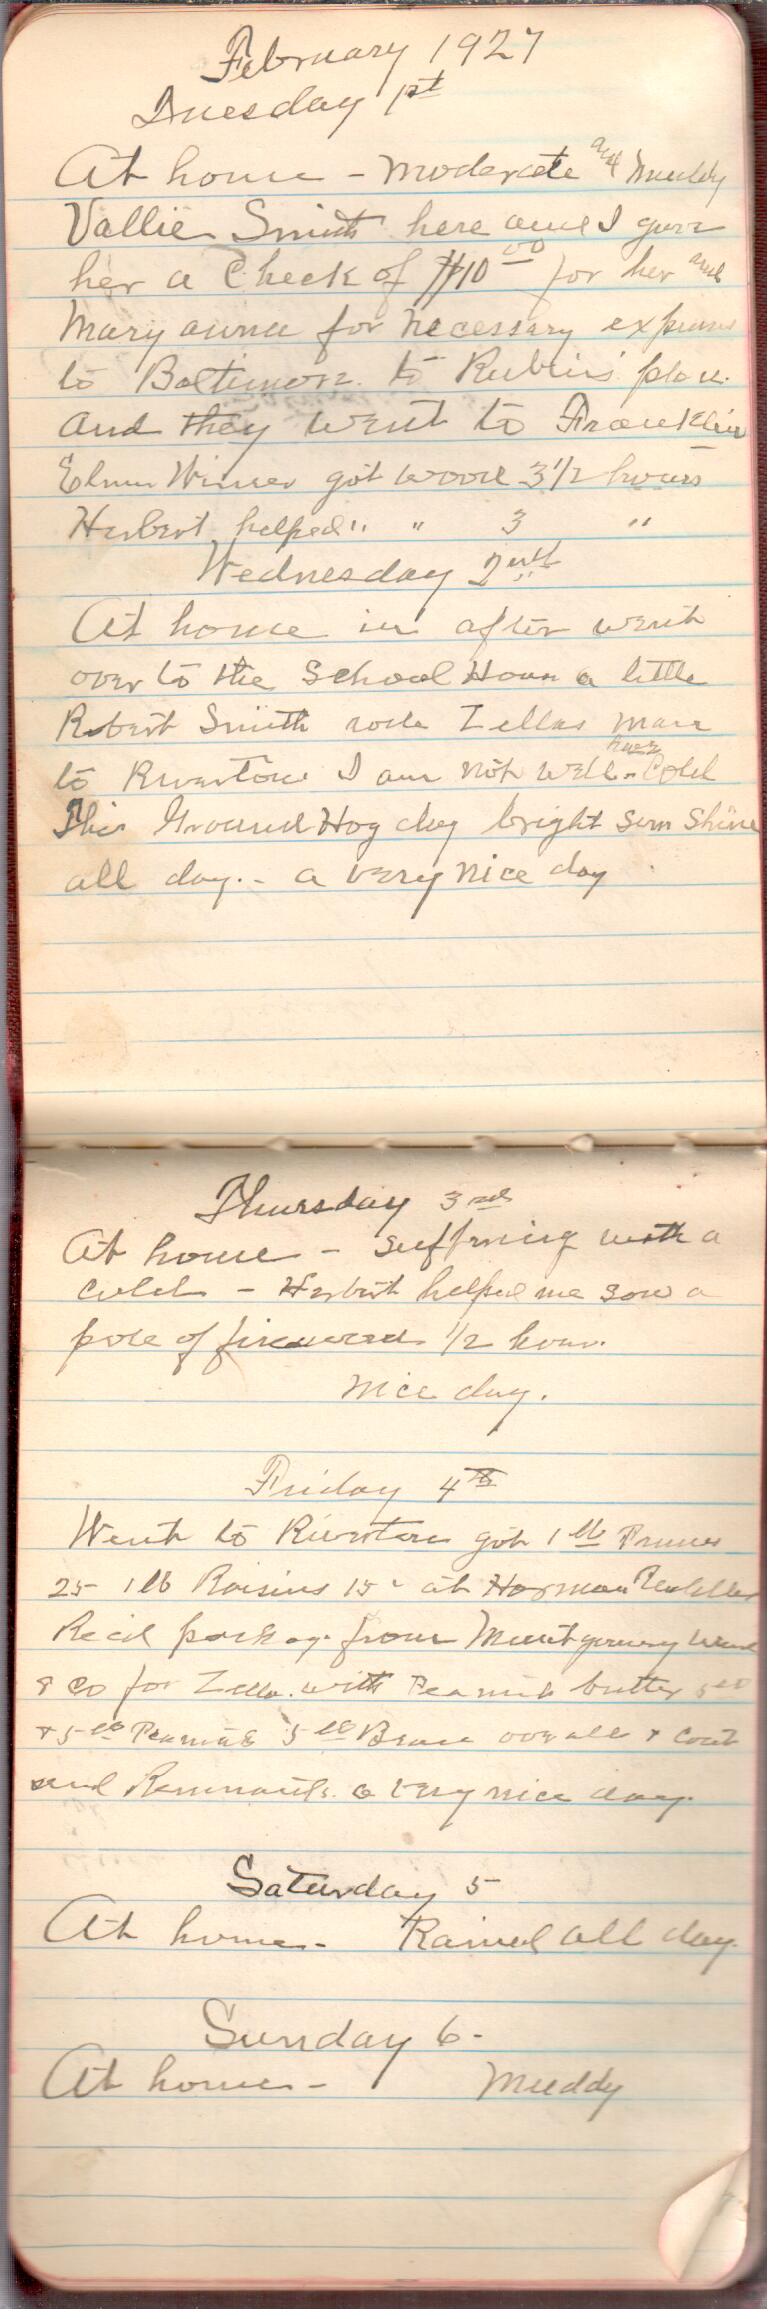 February 1927
Tuesday 1st
At home - Moderate and Muddy
Vallie Smith here and I gave
her a Check of $10.00 for her and
Mary anna for necessary expenses
to Baltimore to Rubins place
and they went to Franklin
Elmer Wimer got wood 3 1/2 hours
Herbert helped " " 3 "
Wednesday 2nd
At home in after went
over to the School House a little
Robert Smith rode Zellas mare
to Riverton I am not well - have Cold
This Ground Hog day bright sun shine
all day. - a very nice day
Thursday 3rd
At home - suffering with a
cold - Herbert helped me sow a
pole of firewood 1/2 hour.
nice day.
Friday 4th
Went to Riverton got 1 lb Prunes
25 1 lb Raisins 15c at Harman
Recd package from Montgomery Ward
& Co for Zella. with Peanut butter
& 5 lb Peanuts 5 lb overall & coat
and Remnants. a very nice day.
Saturday 5
At home - Rained all day.
Sunday 6 -
At home - Muddy